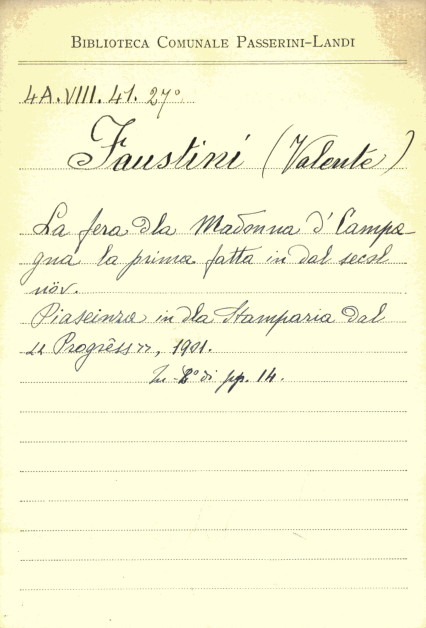 BIBLIOTECA COMUNALE PASSERINI-LANDI
4A.VIII.41.27°
Faustini (Valente)
La fera dla Madonna d' Campa-
gna la prima fatta in dal secol
növ.
Piaseinza in dla Stamparia dal
"Progrêss", 1901.
In 8° di pp. 14.